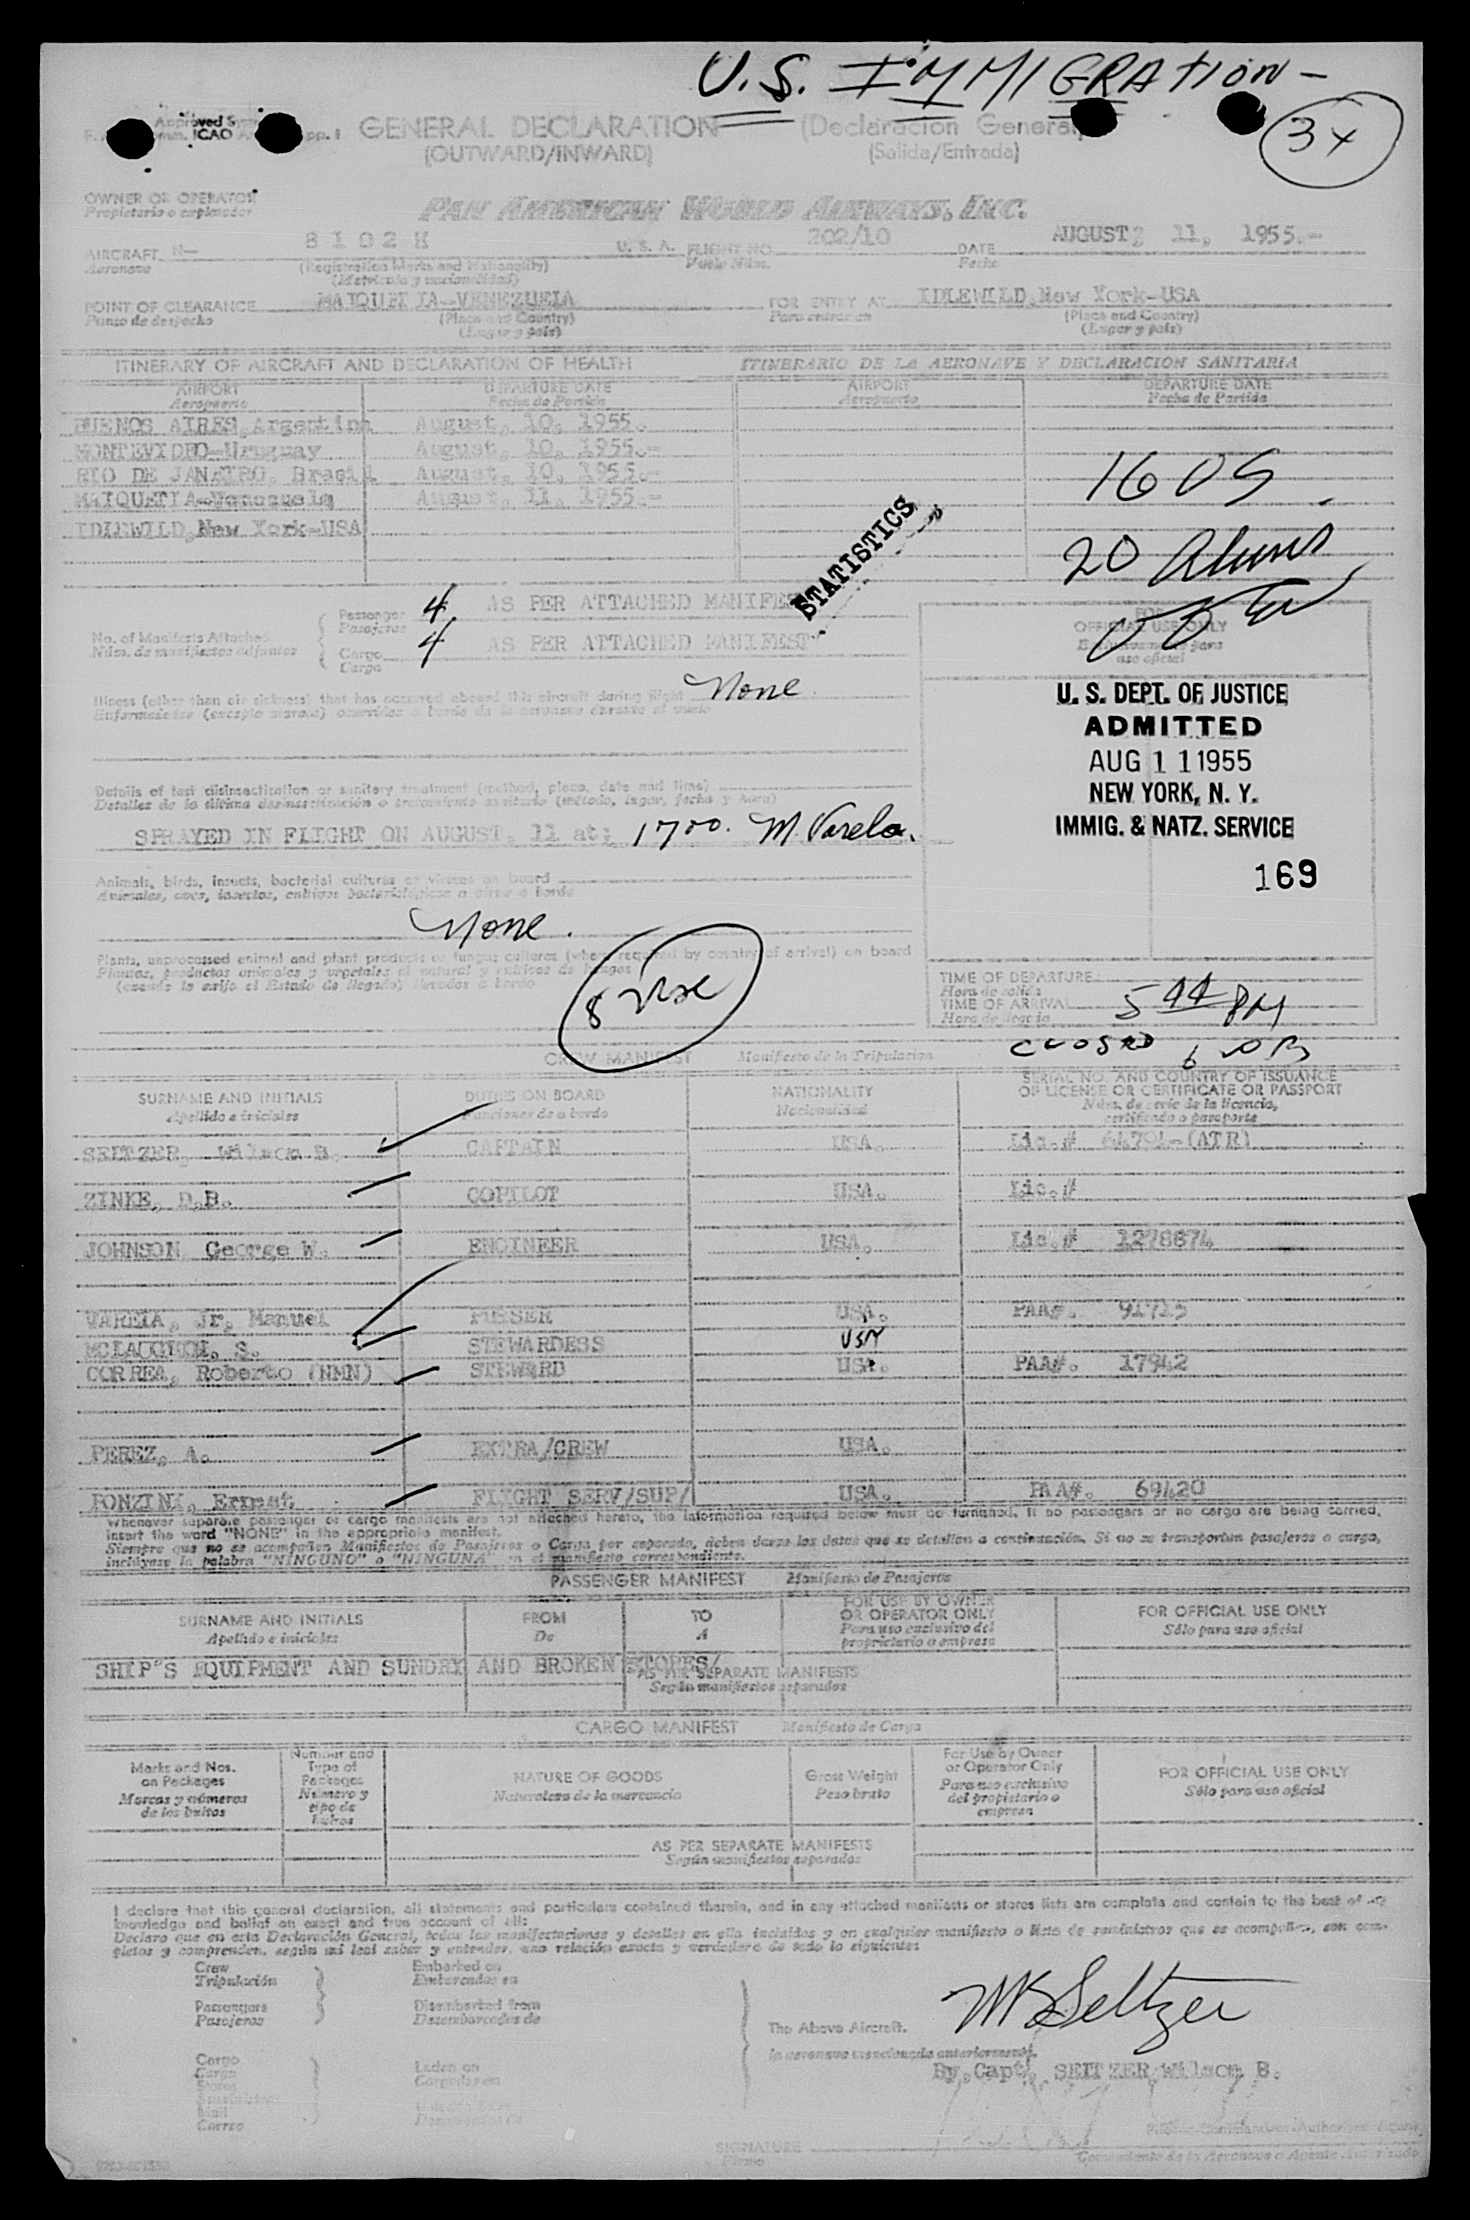 U.S. IMMIGRATION -
34
GENERAL DECLARATION (Declaracion General)
(OUTWARD/INWARD) (Salida/Entrada)
OWNER OR OPERATOR
Propietario o explotador
PAN AMERICAN WORLD AIRWAYS, INC.
AIRCRAFT N- 8102H U. S. A. FLIGHT NO. 202/10 DATE AUGUST; 11, 1955.-
Aeronave (Registration Marks and Nationality) Vuelo Núm. Fecha
(Matrícula y nacionalidad)
POINT OF CLEARANCE MAIQUETIA-VENEZUELA FOR ENTRY AT IDLEWILD,New York-USA
Punto de despacho (Place and Country) Para entrar en (Place and Country)
(Lugar y país) (Lugar y país)
ITINERARY OF AIRCRAFT AND DECLARATION OF HEALTH ITINERARIO DE LA AERONAVE Y DECLARACION SANITARIA
AIRPORT DEPARTURE DATE AIRPORT DEPARTURE DATE
Aeropuerto Fecha de Partida Aeropuerto Fecha de Partida
BUENOS AIRES,Argentina August, 10, 1955.-
MONTEVIDEO-Uruguay August, 10, 1955.-
RIO DE JANEIRO, Brasil August, 10, 1955.-
MAIQUETIA-Venezuela August, 11, 1955.-
IDLEWILD,New York-USA
16 US
20 Aliens
STATISTICS
No. of Manifests Attached
Núm. de manifiestos adjuntos
Passenger 4 AS PER ATTACHED MANIFEST
Pasajeros
Cargo 4 AS PER ATTACHED MANIFEST
Carga
FOR
OFFICIAL USE ONLY
Exclusivamente para
uso oficial
Illness (other than air sickness) that has occured aboard this aircraft during flight None
Enfermedades (excepto mareo) ocurridas a bordo de la aeronave durante el vuelo
U. S. DEPT. OF JUSTICE
ADMITTED
AUG 11 1955
NEW YORK, N. Y.
IMMIG. & NATZ. SERVICE
169
Details of last disinsectization or sanitary treatment (method, place, date and time)
Detalles de la última desinsectización o tratamiento sanitario (método, lugar, fecha y hora)
SPRAYED IN FLIGHT ON AUGUST, 11 at; 1700. M. Varela.
Animals, birds, insects, bacterial cultures or viruses on board
Animales, aves, insectos, cultivos bacteriológicos o virus a bordo
None.
Plants, unprocessed animal and plant products or fungus cultures (where required by country of arrival) on board
Plantas, productos animales y vegetales al natural y cultivos de hongos
(cuando lo exija el Estado de llegada) llevados a bordo
TIME OF DEPARTURE
Hora de salida
TIME OF ARRIVAL 5 44 PM
Hora de llegada
CLOSED
CREW MANIFEST Manifiesto de la Tripulacion
SURNAME AND INITIALS DUTIES ON BOARD NATIONALITY SERIAL NO. AND COUNTRY OF ISSUANCE
OF LICENSE OR CERTIFICATE OR PASSPORT
Apellido e iniciales Funciones de a bordo Nacionalidad Núm. de serie de la licencia,
certificado o pasaporte
SELTZER, Wilson B. CAPTAIN USA. Lic.# 64794-(ATR)
ZINKE, D.B. COPILOT USA. Lic.#
JOHNSON George W. ENGINEER USA. Lic.# 1278874
VARELA, Jr, Manuel PURSER USA. PAA#. 91715
MCLAUGHLIN, S. STEWARDESS USA
CORREA, Roberto (NMN) STEWARD USA. PAA#. 17942
PEREZ, A. EXTRA/CREW USA.
PONZINI, Ernst FLIGHT SERV/SUP/ USA. PAA#. 69420
Whenever separate passenger or cargo manifests are not attached hereto, the information required below must be furnished. If no passengers or no cargo are being carried,
insert the word "NONE" in the appropriate manifest.
Siempre que no se acompañen Manifiestos de Pasajeros o Carga por separado, deben darse los datos que se detallan a continuación. Si no se transportan pasajeros o carga,
inclúyase la palabra "NINGUNO" o "NINGUNA" en el manifiesto correspondiente.
PASSENGER MANIFEST Manifiesto de Pasajeros
SURNAME AND INITIALS FROM TO FOR USE BY OWNER
OR OPERATOR ONLY FOR OFFICIAL USE ONLY
Apellido e iniciales De A Para uso exclusivo del
propietario o empresa Sólo para uso oficial
SHIP"S EQUIPMENT AND SUNDRY AND BROKEN STORES/
AS PER SEPARATE MANIFESTS
Según manifiestos separados
CARGO MANIFEST Manifiesto de Carga
Marks and Nos.
on Packages
Marcas y números
de los bultos
Number and
Type of
Packages
Número y
tipo de
bultos
NATURE OF GOODS
Naturaleza de la mercancía
Gross Weight
Peso bruto
For Use by Owner
or Operator Only
Para uso exclusivo
del propietario o
empresa
FOR OFFICIAL USE ONLY
Sólo para uso oficial
AS PER SEPARATE MANIFESTS
Según manifiestos separados
I declare that this general declaration, all statements and particulars contained therein, and in any attached manifests or stores lists are complete and contain to the best of my
knowledge and belief an exact and true account of all:
Declaro que en esta Declaración General, todas las manifestaciones y detalles en ella incluidos y en cualquier manifiesto o lista de suministros que se acompañen, son com-
pletos y comprenden, según mi leal saber y entender, una relación exacta y verdadera de todo lo siguiente:
Crew
Tripulación
Embarked on
Embarcados en
Passengers
Pasajeros
Disembarked from
Desembarcados de
Cargo
Carga
Stores
Mail
Correo
Laden on
Cargados en
The Above Aircraft.
la aeronave mencionada anteriormente.
WB Seltzer
By,Capt, SELTZER,Wilson B.
SIGNATURE
Firma
Comandante de la Aeronave o Agente Autorizado